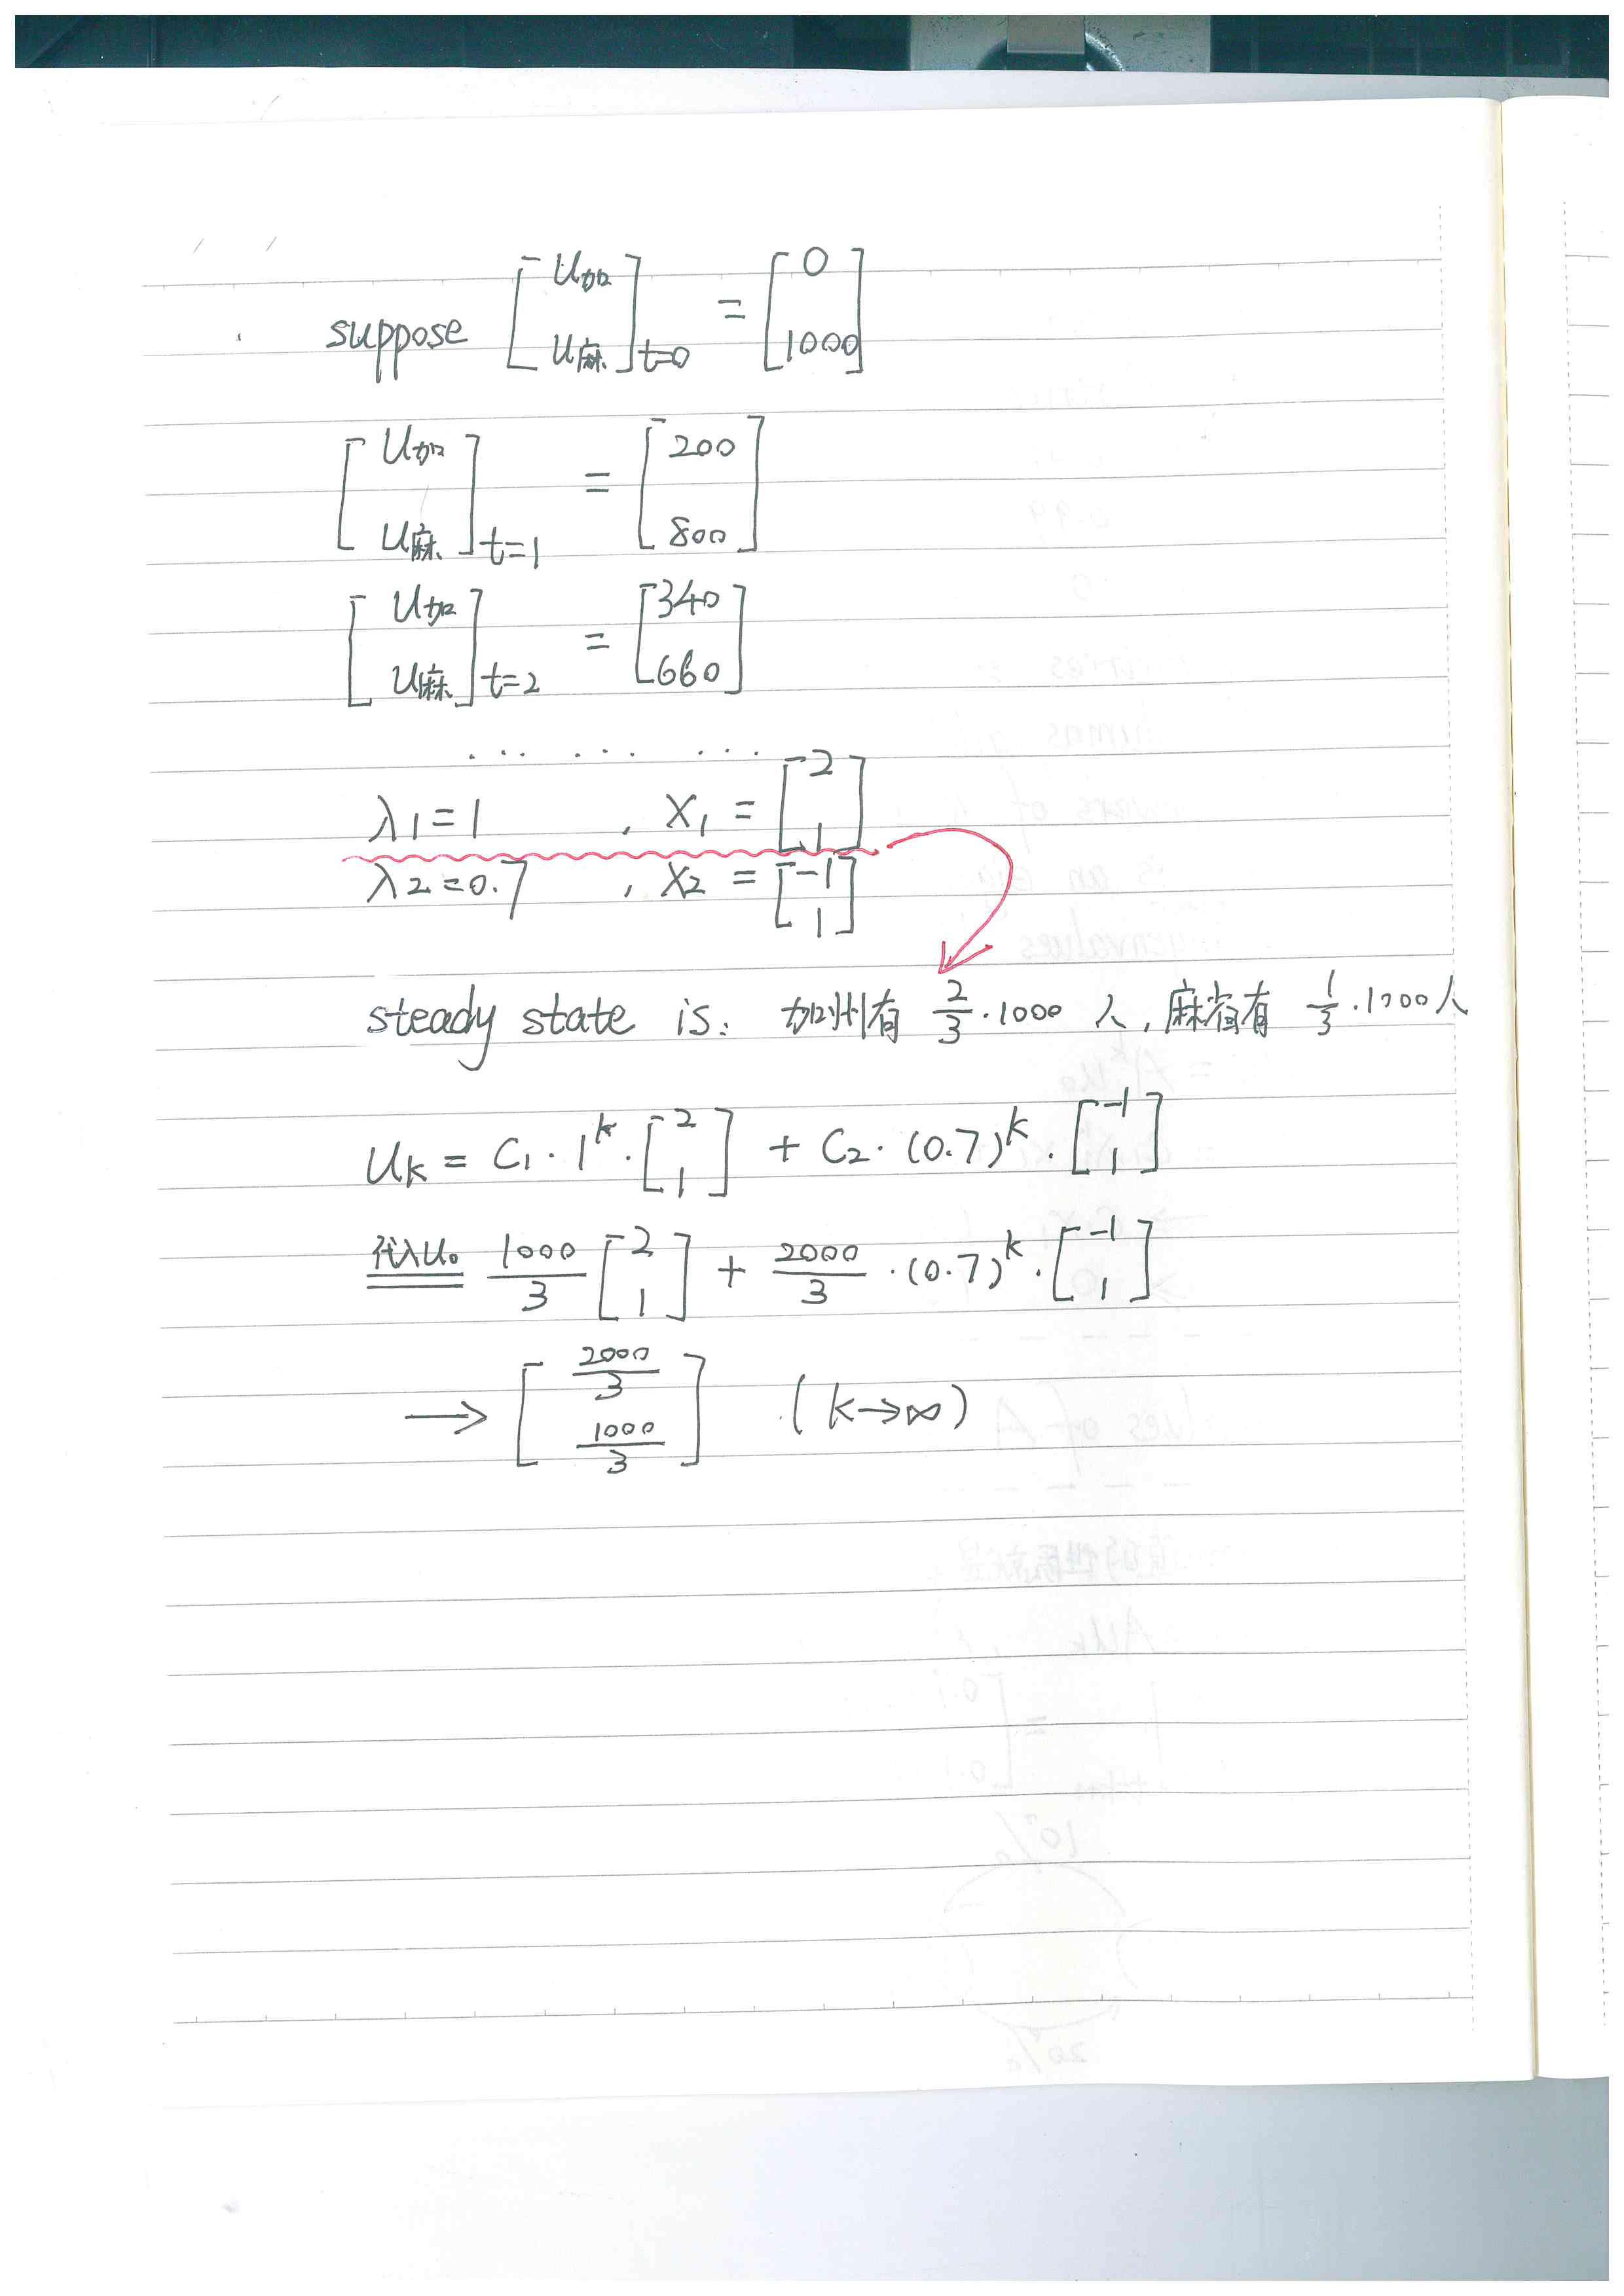 suppose [ u加 u麻 ] t=0 = [ 0 1000 ]
[ u加 u麻 ] t=1 = [ 200 800 ]
[ u加 u麻 ] t=2 = [ 340 660 ]
... ... ...
λ1=1 , X1 = [ 2 1 ]
λ2=0.7 , X2 = [ -1 1 ]
steady state is: 加州有 2/3 · 1000 人, 麻省有 1/3 · 1000人
uk = C1 · 1^k · [ 2 1 ] + C2 · (0.7)^k · [ -1 1 ]
代入u0 1000/3 [ 2 1 ] + 2000/3 · (0.7)^k · [ -1 1 ]
→ [ 2000/3 1000/3 ] (k→∞)